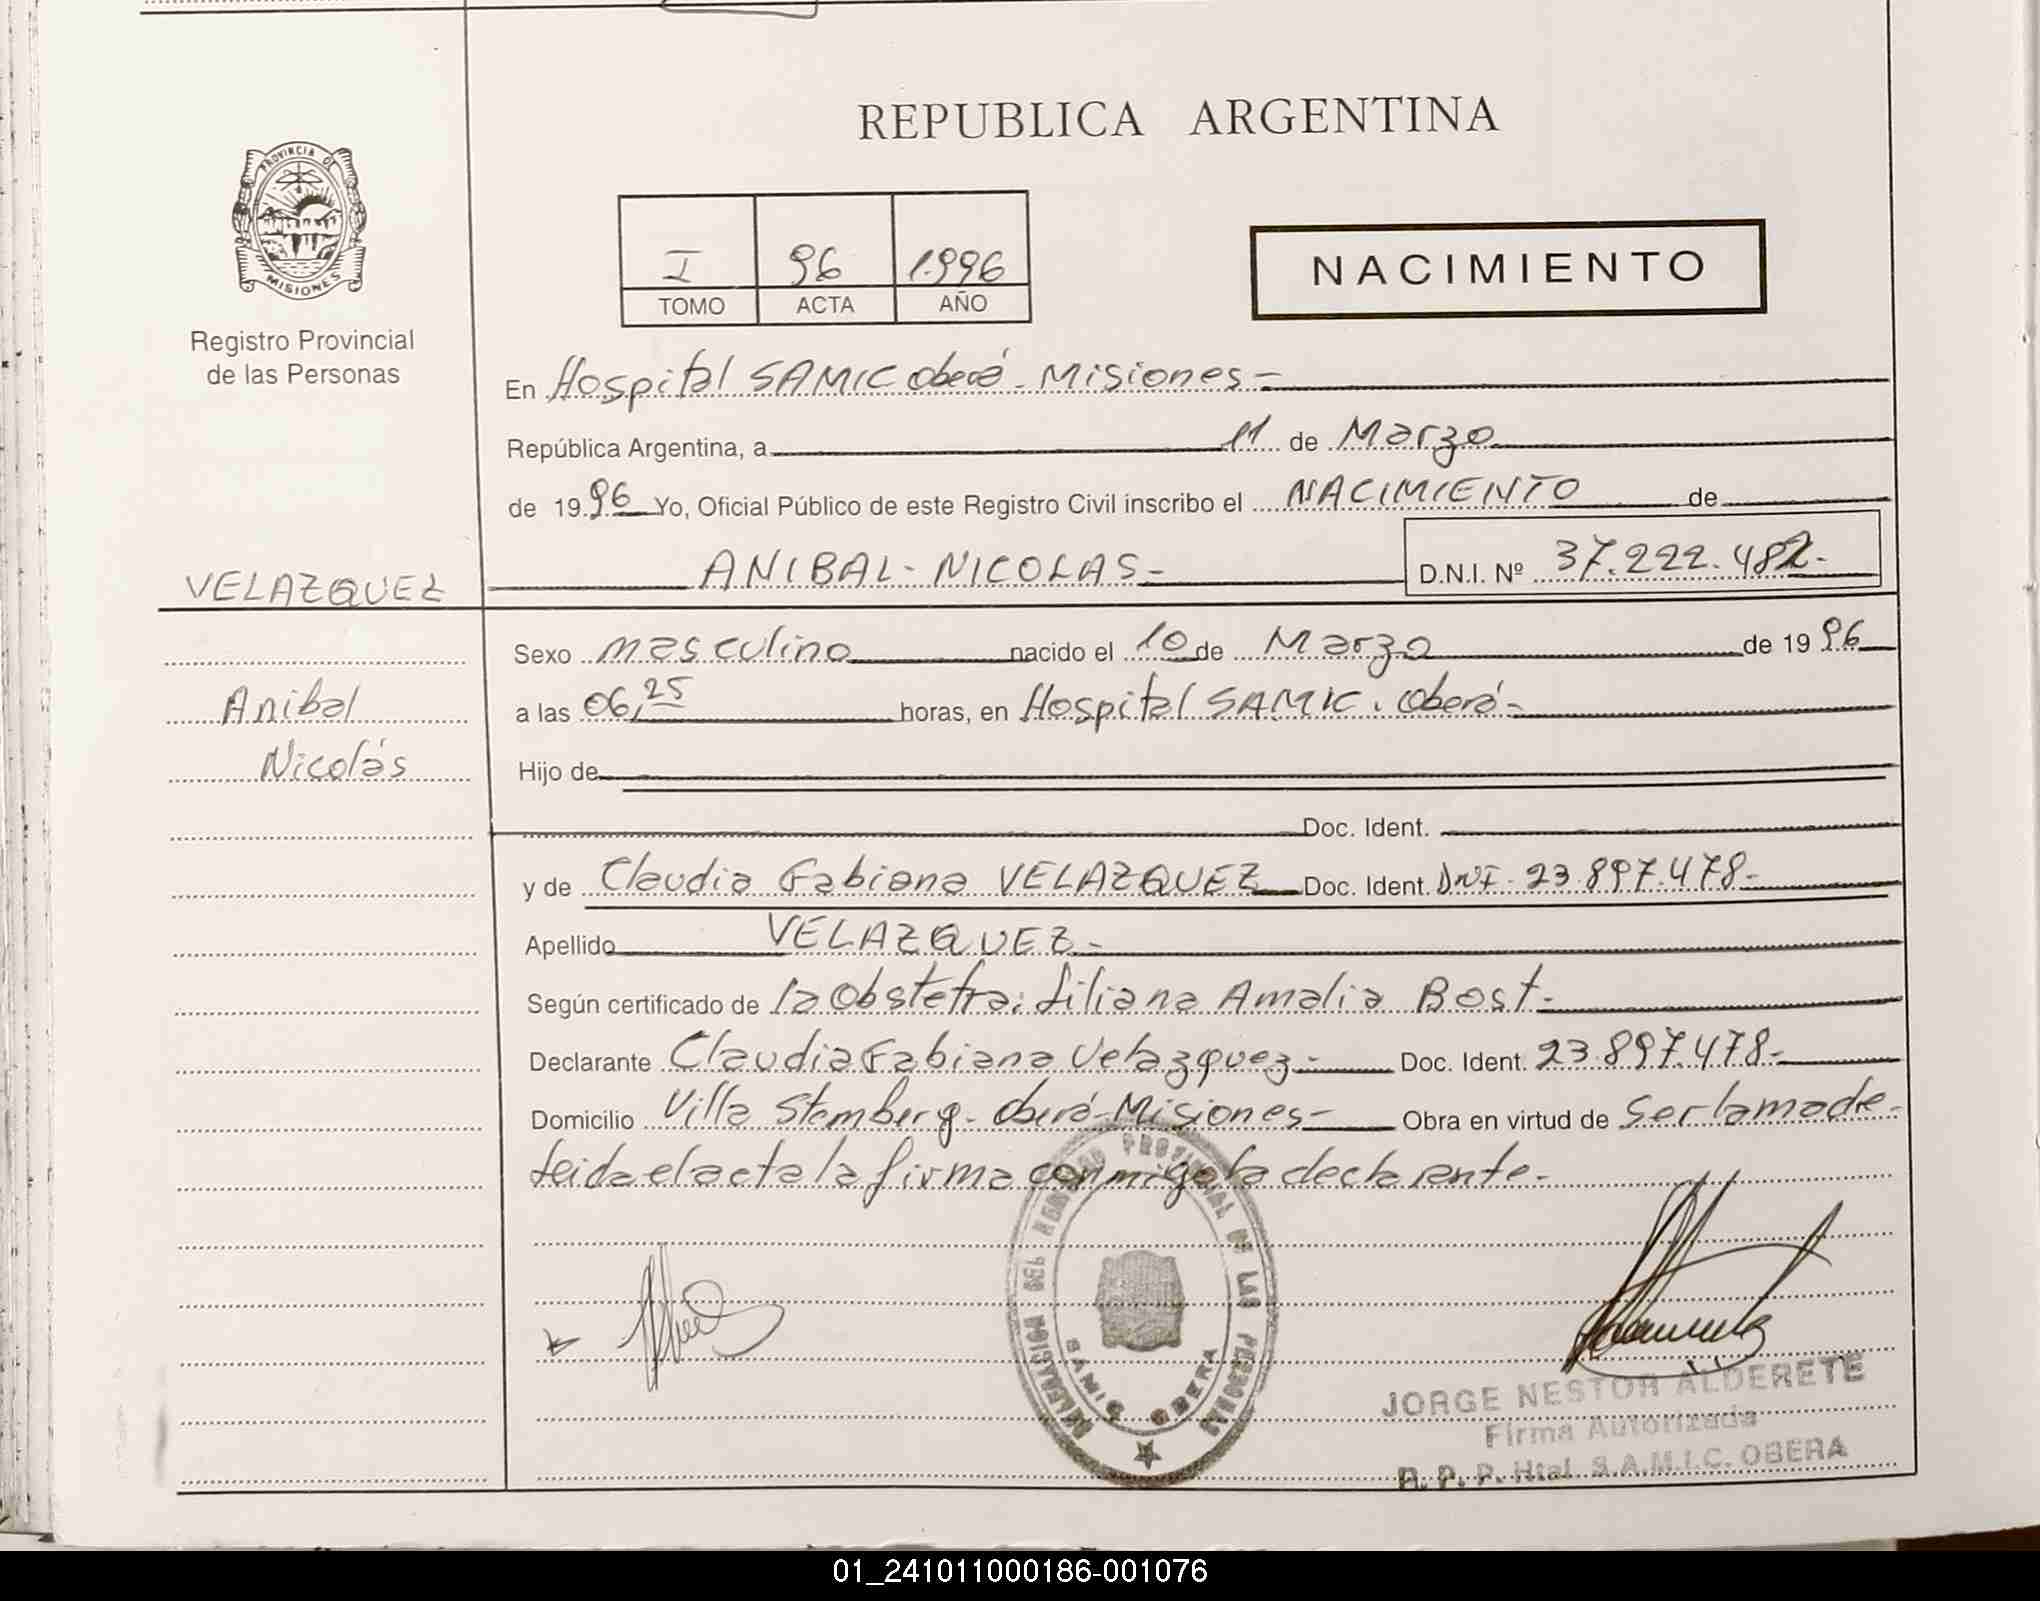 REPUBLICA ARGENTINA
PROVINCIA DE
MISIONES
Registro Provincial
de las Personas
I 96 1.996
TOMO ACTA AÑO
NACIMIENTO
En Hospital SAMIC Oberá - Misiones -
República Argentina, a 11 de Marzo
de 19 96 Yo, Oficial Público de este Registro Civil inscribo el NACIMIENTO de
VELAZQUEZ
ANIBAL - NICOLAS - D.N.I. Nº 37.222.482-
Sexo masculino nacido el 10 de Marzo de 19 96
Anibal
a las 06,25 horas, en Hospital SAMIC. Oberá -
Nicolás
Hijo de
Doc. Ident.
y de Claudia Fabiana VELAZQUEZ Doc. Ident. DNI- 23.897.478-
Apellido VELAZQUEZ -
Según certificado de la Obstetra: Liliana Amalia Bost -
Declarante Claudia Fabiana Velazquez - Doc. Ident. 23.897.478-
Domicilio Villa Stemberg - Oberá - Misiones - Obra en virtud de ser la madre -
Leida el acta la firma conmigo la declarante -
DELEGACION DEL REGISTRO PROVINCIAL DE LAS PERSONAS
SAMIC OBERA
JORGE NESTOR ALDERETE
Firma Autorizada
R. P. P. Htal. S.A.M.I.C. OBERA
01_241011000186-001076